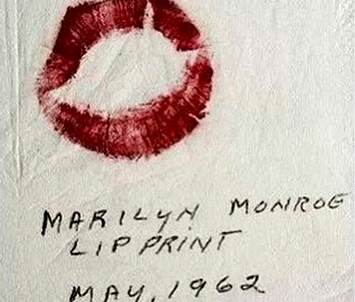 MARILYN MONROE
LIP PRINT
MAY, 1962